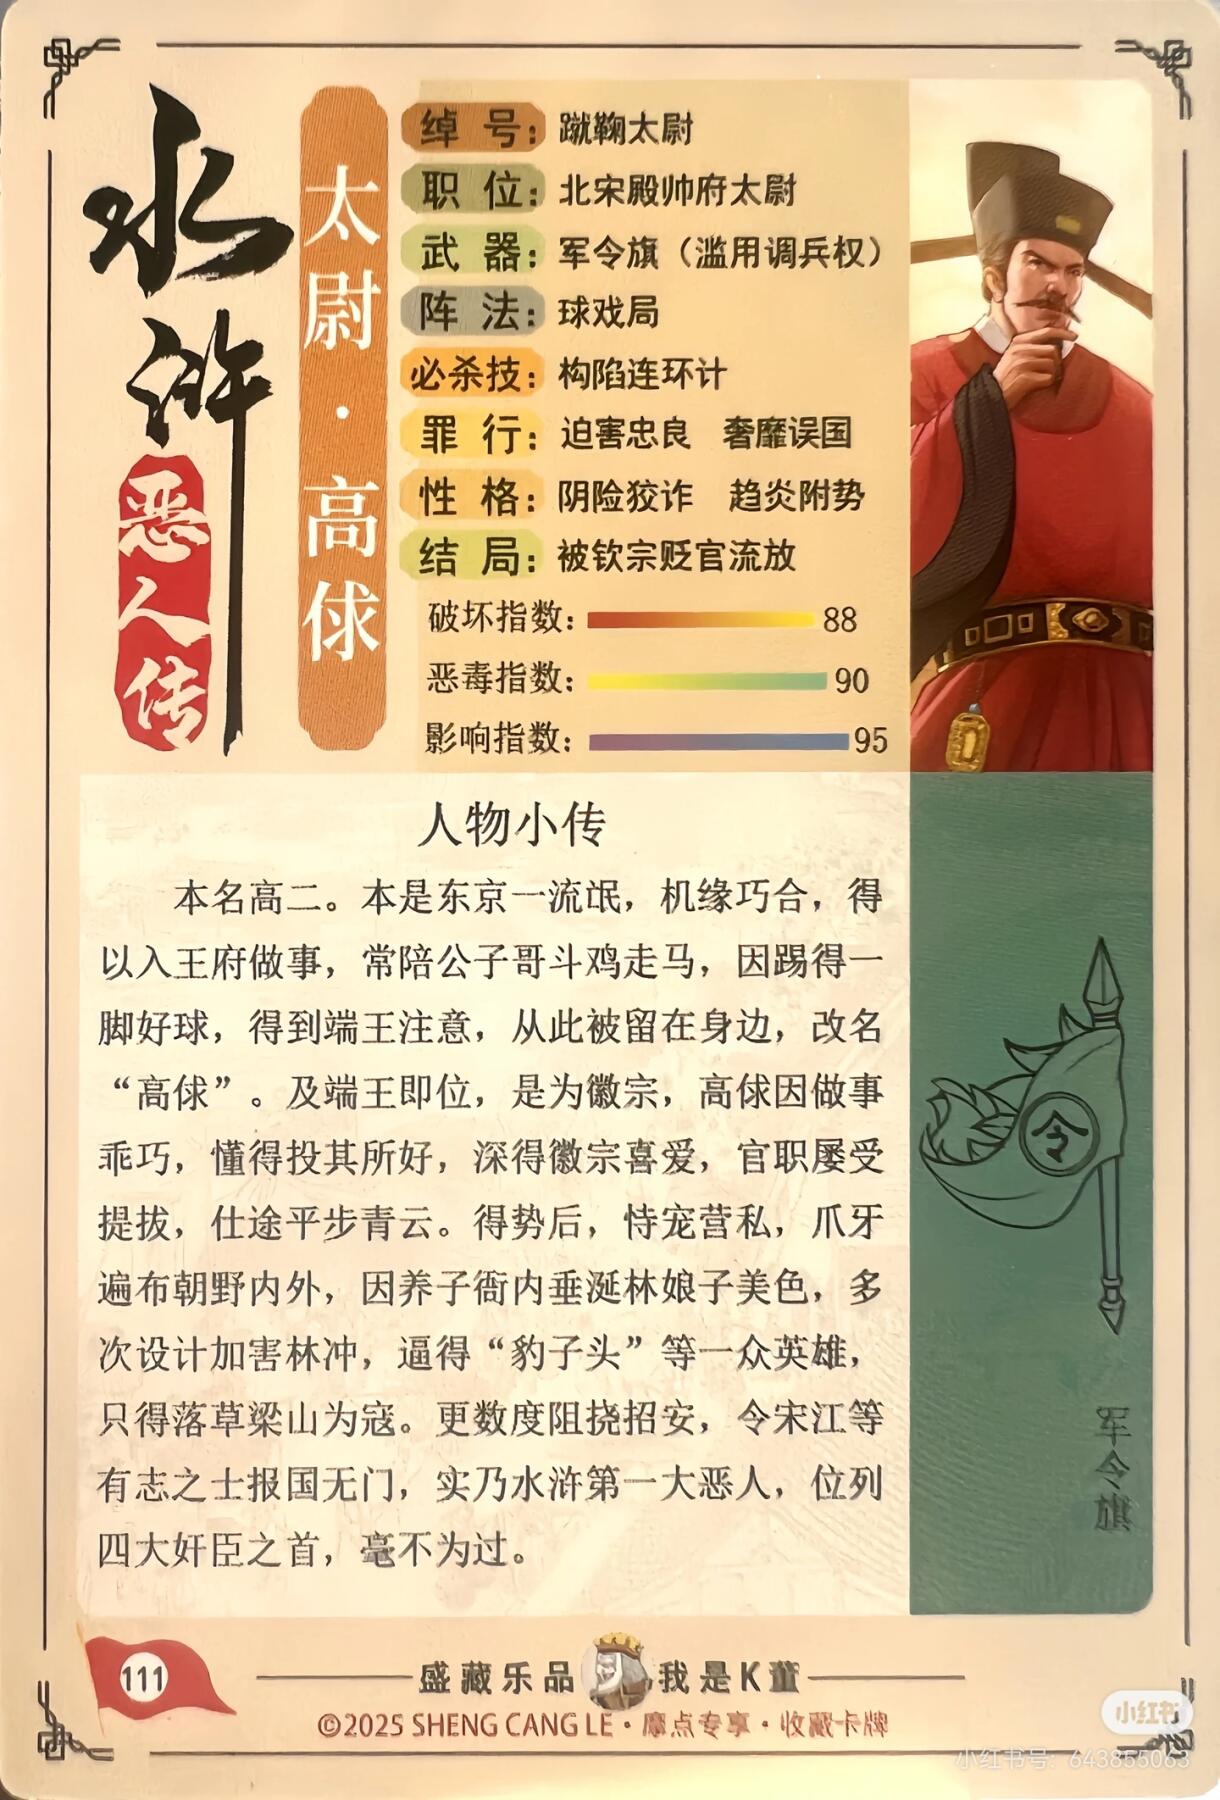 水浒
恶人传
太尉·高俅
绰号：蹴鞠太尉
职位：北宋殿帅府太尉
武器：军令旗（滥用调兵权）
阵法：球戏局
必杀技：构陷连环计
罪行：迫害忠良 奢靡误国
性格：阴险狡诈 趋炎附势
结局：被钦宗贬官流放
破坏指数：88
恶毒指数：90
影响指数：95
人物小传
本名高二。本是东京一流氓，机缘巧合，得
以入王府做事，常陪公子哥斗鸡走马，因踢得一
脚好球，得到端王注意，从此被留在身边，改名
“高俅”。及端王即位，是为徽宗，高俅因做事
乖巧，懂得投其所好，深得徽宗喜爱，官职屡受
提拔，仕途平步青云。得势后，恃宠营私，爪牙
遍布朝野内外，因养子衙内垂涎林娘子美色，多
次设计加害林冲，逼得“豹子头”等一众英雄，
只得落草梁山为寇。更数度阻挠招安，令宋江等
有志之士报国无门，实乃水浒第一大恶人，位列
四大奸臣之首，毫不为过。
令
军令旗
111
盛藏乐品 我是K董
©2025 SHENG CANG LE·摩点专享·收藏卡牌
小红书
小红书号：643855063